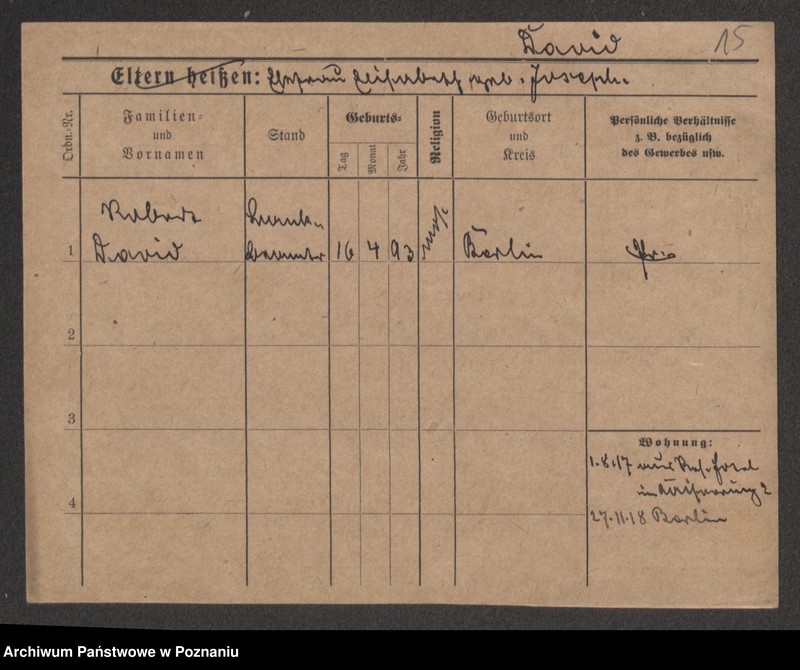 David
15
Eltern heißen: Ehefrau Elisabeth geb. Joseph.
Ordn.-Nr.
Familien- und Vornamen
Stand
Geburts-
Tag
Monat
Jahr
Religion
Geburtsort und Kreis
Persönliche Verhältnisse z. B. bezüglich des Gewerbes usw.
Robert
Bank-
1 David beamter 16 4 93 mos. Berlin
2
3
Wohnung:
1.8.17 aus
in
4
27.11.18 Berlin
Archiwum Państwowe w Poznaniu